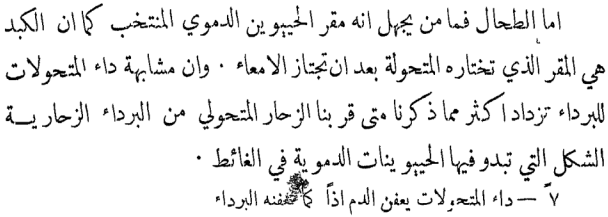 اما الطحال فما من يجهل انه مقر الحييوين الدموي المنتخب كما ان الكبد
هي المقر الذي تختاره المتحولة بعد ان تجتاز الامعاء . وان مشابهة داء المتحولات
للبرداء تزداد اكثر مما ذكرنا متى قربنا الزحار المتحولي من البرداء الزحاريــة
الشكل التي تبدو فيها الحييوينات الدموية في الغائط .
٧ً – داء المتحولات يعفن الدم اذاً كما تعفنه البرداء